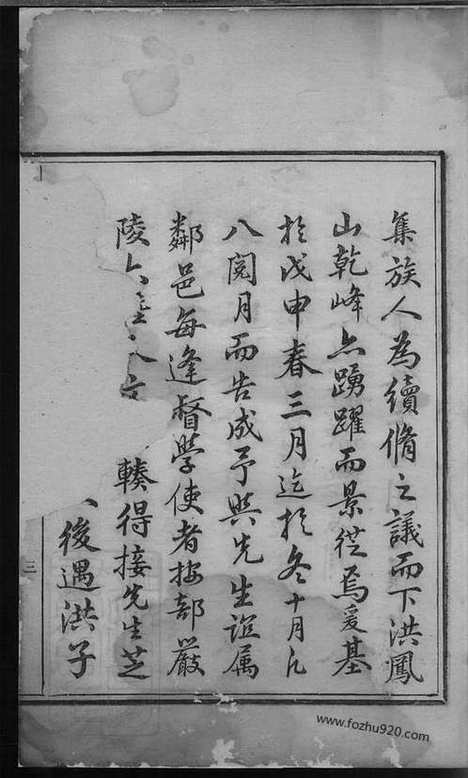 集族人為續脩之議而下洪鳳
山乾峰亦踴躍而景從焉爰基
於戊申春三月迄於冬十月凡
八閱月而告成予與先生誼属
鄰邑每逢督學使者按部嚴
陵 轃得接先生芝
後遇洪子
三
www.fozhu920.com